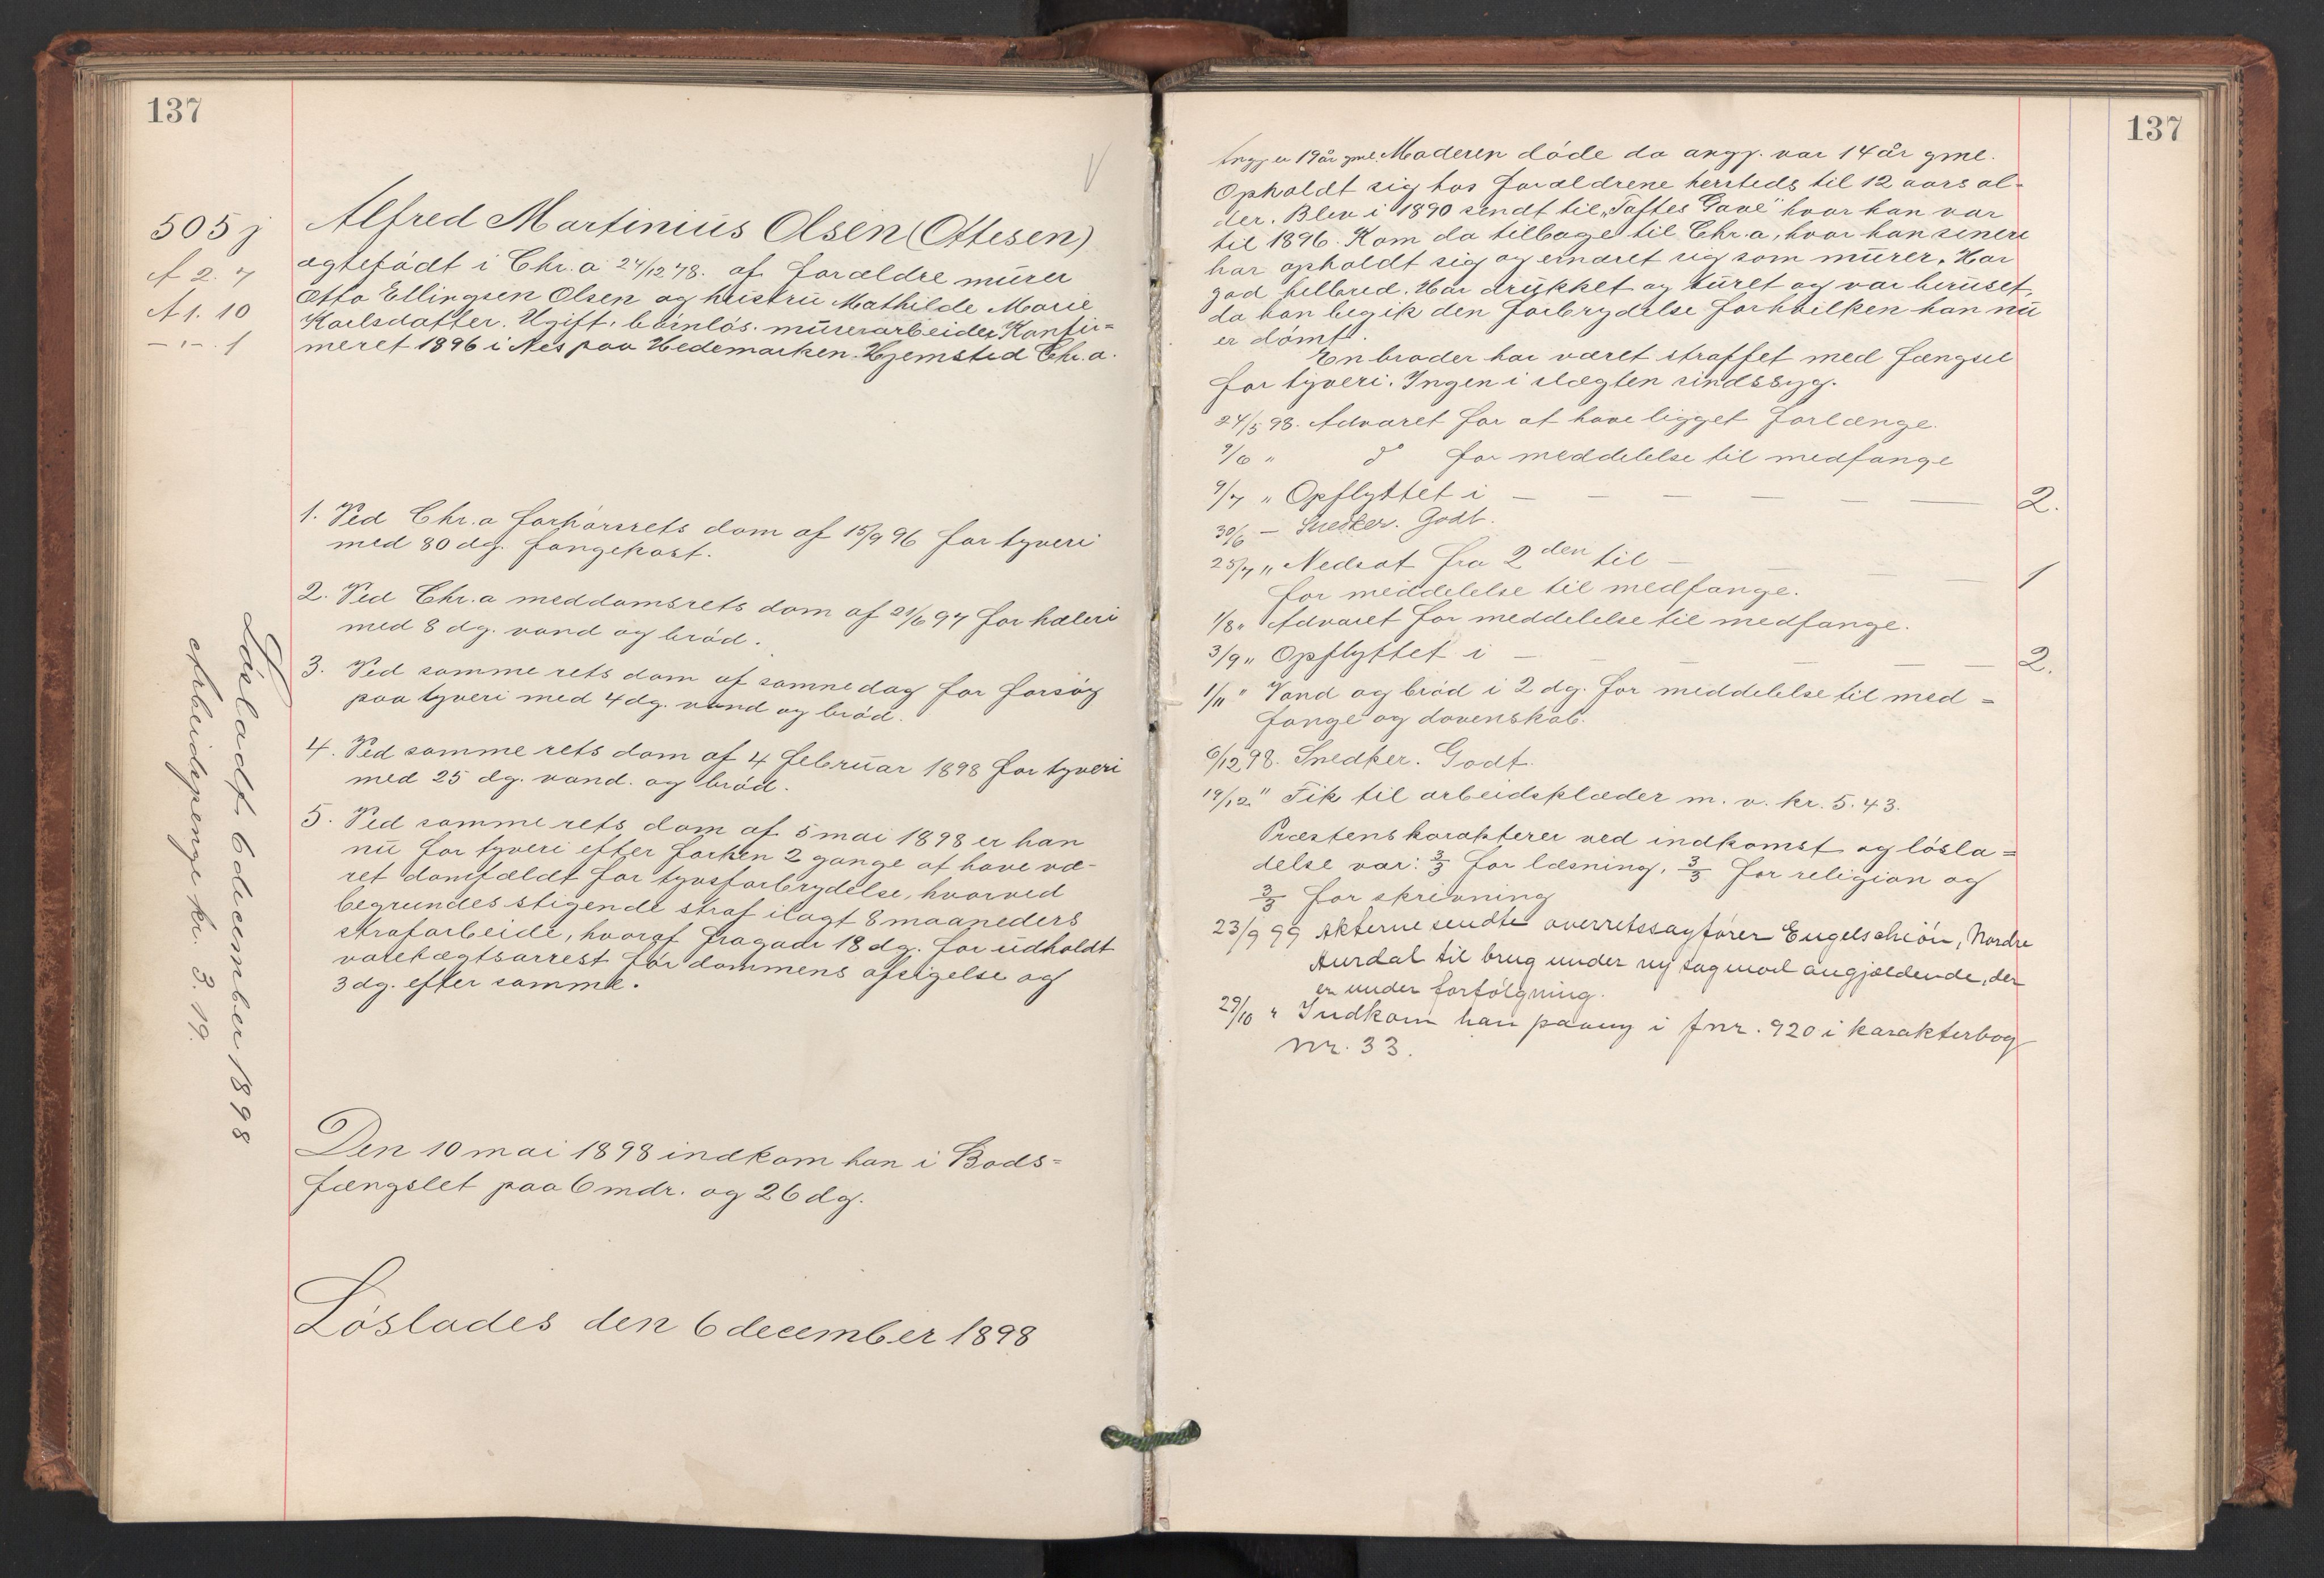 137
505 j
A 2. 7
A 1. 10
— " — . 1
Alfred Martinius Olsen (Ottesen)
ægtefødt i Chr.a 24/12 78. af forældre murer
Otto Ellingsen Olsen og hustru Mathilde Marie
Karlsdatter. Ugift, børnløs. murerarbeider Konfir=
meret 1896 i Nes paa Hedemarken. Hjemsted Chr.a.
1. Ved Chr.a forhørsrets dom af 15/9 96 for tyveri
med 80 dg. fangekost.
2. Ved Chr.a meddomsrets dom af 21/6 97 for hæleri
med 8 dg. vand og brød.
3. Ved samme rets dom af samme dag for forsøg
paa tyveri med 4 dg. vand og brød.
4. Ved samme rets dom af 4 februar 1898 for tyveri
med 25 dg. vand. og brød.
5. Ved samme rets dom af 5 mai 1898 er han
nu for tyveri efter forhen 2 gange at have væ-
ret domfældt for tyvsforbrydelse, hvorved
begrundes stigende straf ilagt 8 maaneders
strafarbeide, hvoraf fragaar 18 dg. for udholdt
varetægtsarrest før dommens afsigelse og
3 dg. efter samme.
Den 10 mai 1898 indkom han i Bods=
fængslet paa 6 mdr. og 26 dg.
Løslades den 6 december 1898
Løsladt 6 december 1898
Arbeidspenge kr. 3.19.
137
Angj. er 19 år gml. Moderen døde da angj. var 14 år gml.
Opholdt sig hos forældrene hersteds til 12 aars al-
der. Blev i 1890 sendt til „Toftes Gave" hvor han var
til 1896. Kom da tilbage til Chr.a, hvor han senere
har opholdt sig og ernæret sig som murer. Har
god helbred. Har drukket og turet og var beruset,
da han begik den forbrydelse for hvilken han nu
er dømt.
En broder har været straffet med fængsel
for tyveri. Ingen i slægten sindssyg.
24/5 98. Advaret for at have ligget forlænge.
9/6 " do for meddelelse til medfange
9/7 " Opflyttet i — — — — — — 2.
30/6 — Snedker. Godt.
25/7 " Nedsat fra 2den til — — — 1
for meddelelse til medfange.
1/8 " Advaret for meddelelse til medfange.
3/9 " Opflyttet i — — — — — — 2.
1/11 " Vand og brød i 2 dg. for meddelelse til med=
fange og dovenskab.
6/12 98. Snedker. Godt.
19/12 " Fik til arbeidsklæder m. v. kr. 5.43.
Præstens karakterer ved indkomst og løsla=
delse var: 3/3 for læsning, 3/3 for religion og
3/3 for skrivning
23/9 99 Akterne sendte overretssagfører Engelschiøn, Nordre
Aurdal til brug under ny sag mod angjældende, der
er under forfølgning.
29/10 " Indkom han paany i fnr. 920 i karakterbog
nr. 33.